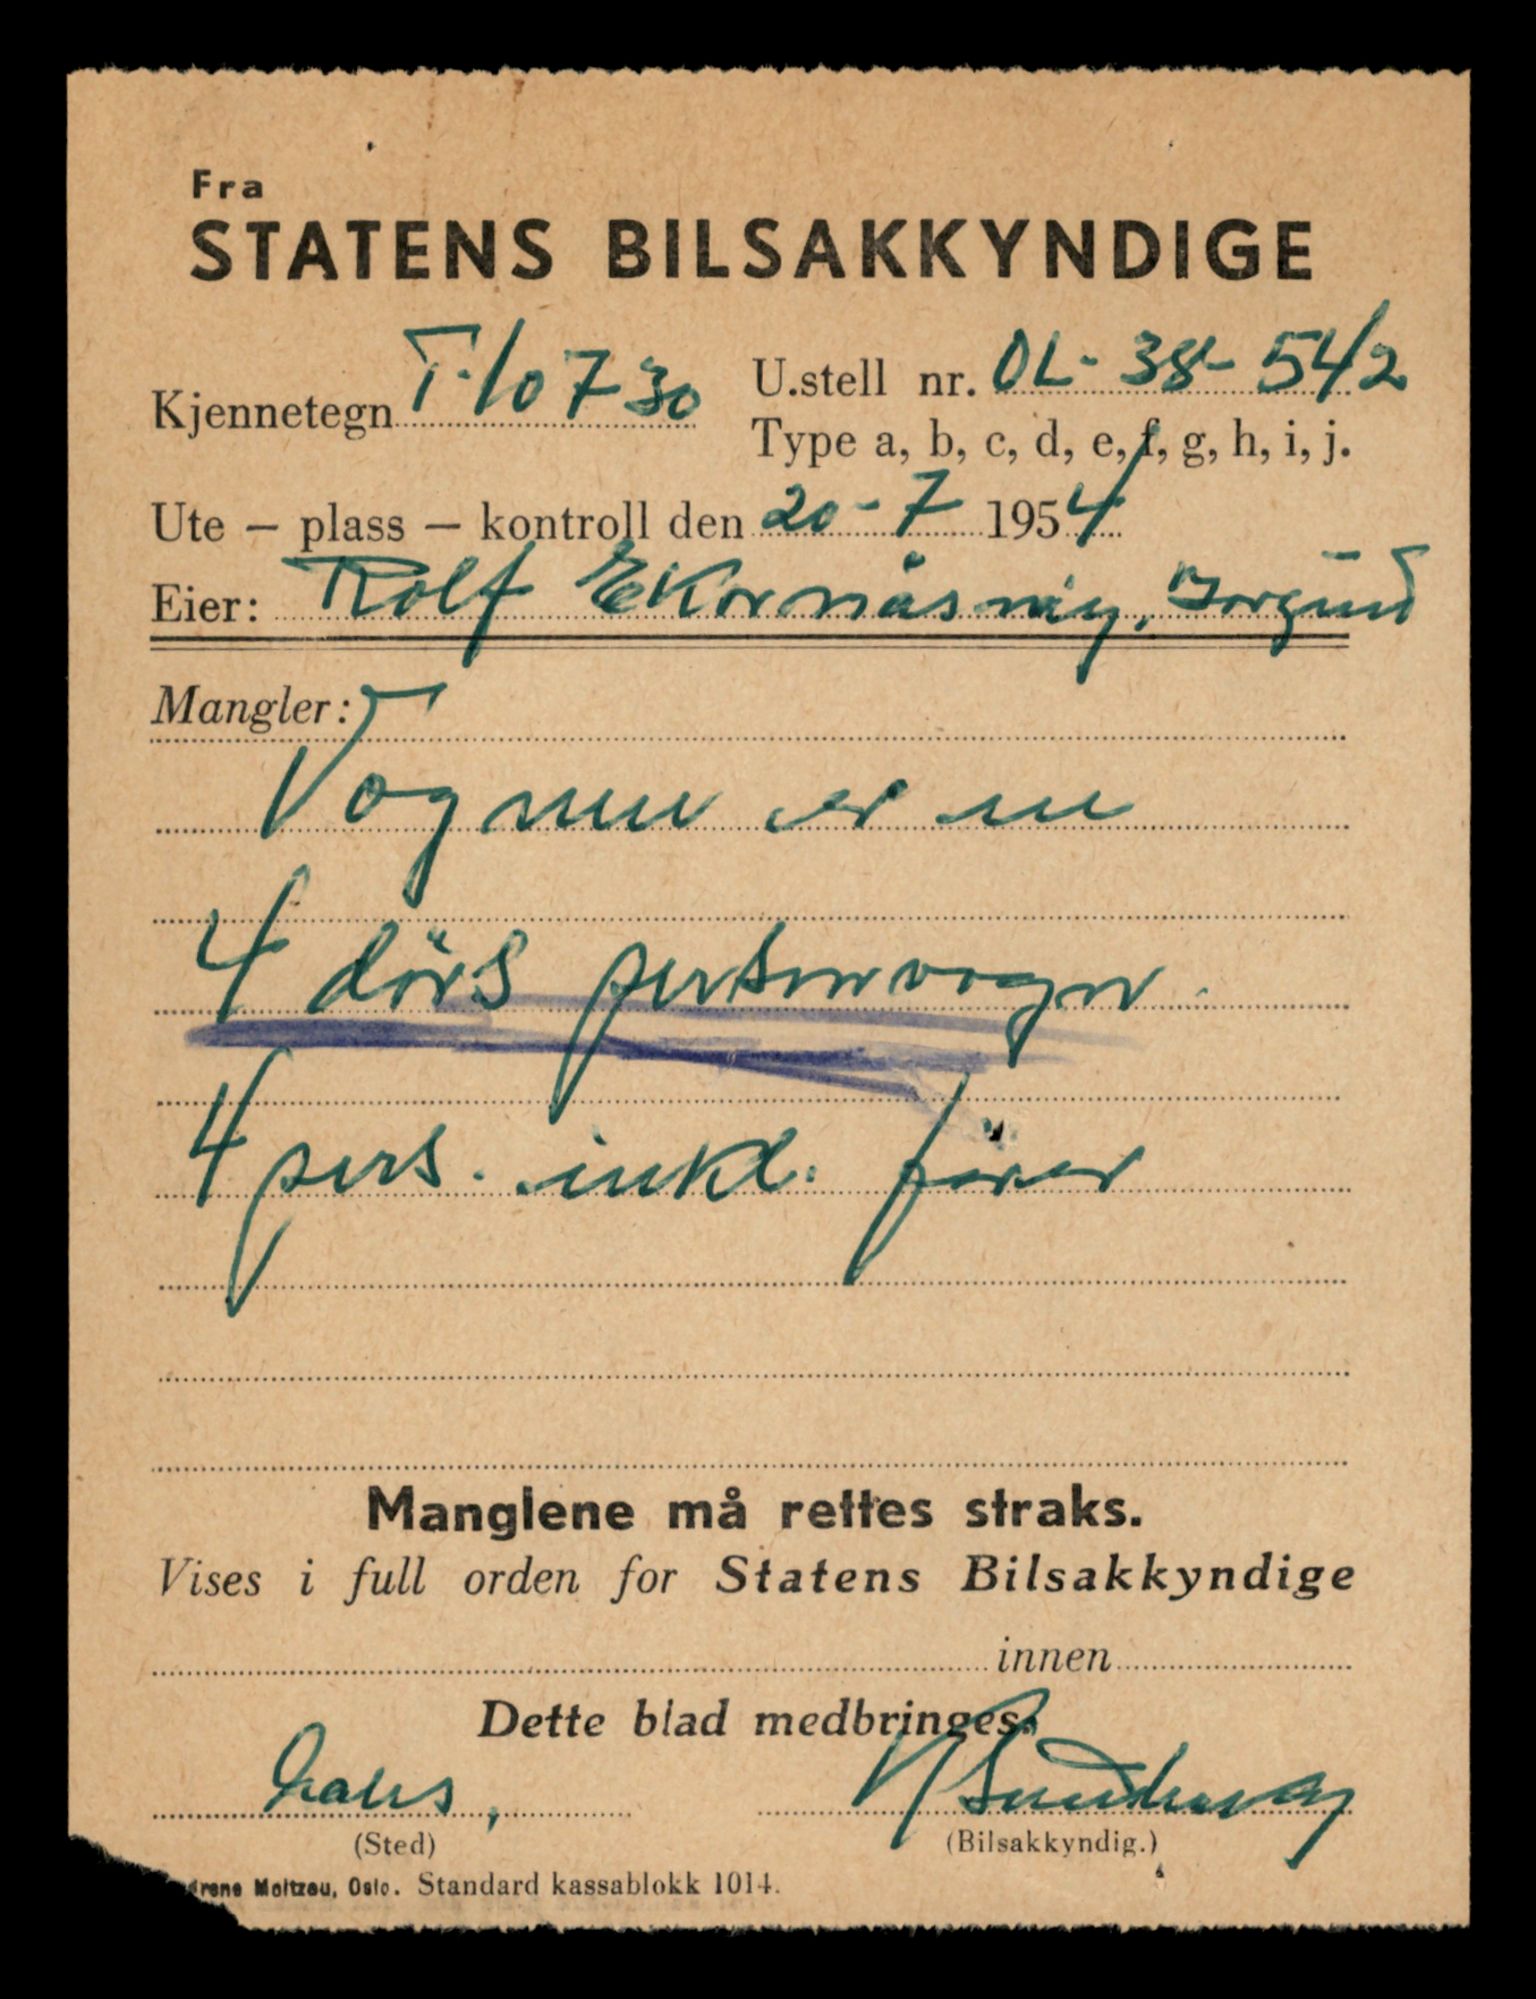 Fra
STATENS BILSAKKYNDIGE
Kjennetegn T-10730
U.stell nr. OL-38-542
Type a, b, c, d, e, f, g, h, i, j.
Ute – plass – kontroll den 20-7 1954
Eier: Rolf Ekornåsvåg, Borgund
Mangler:
Vognen er en
4 dörs personvogn.
4 pers. inkl. förer
Manglene må rettes straks.
Vises i full orden for Statens Bilsakkyndige
innen
Dette blad medbringes.
(Sted)
(Bilsakkyndig.)
Moltzau, Oslo. Standard kassablokk 1014.